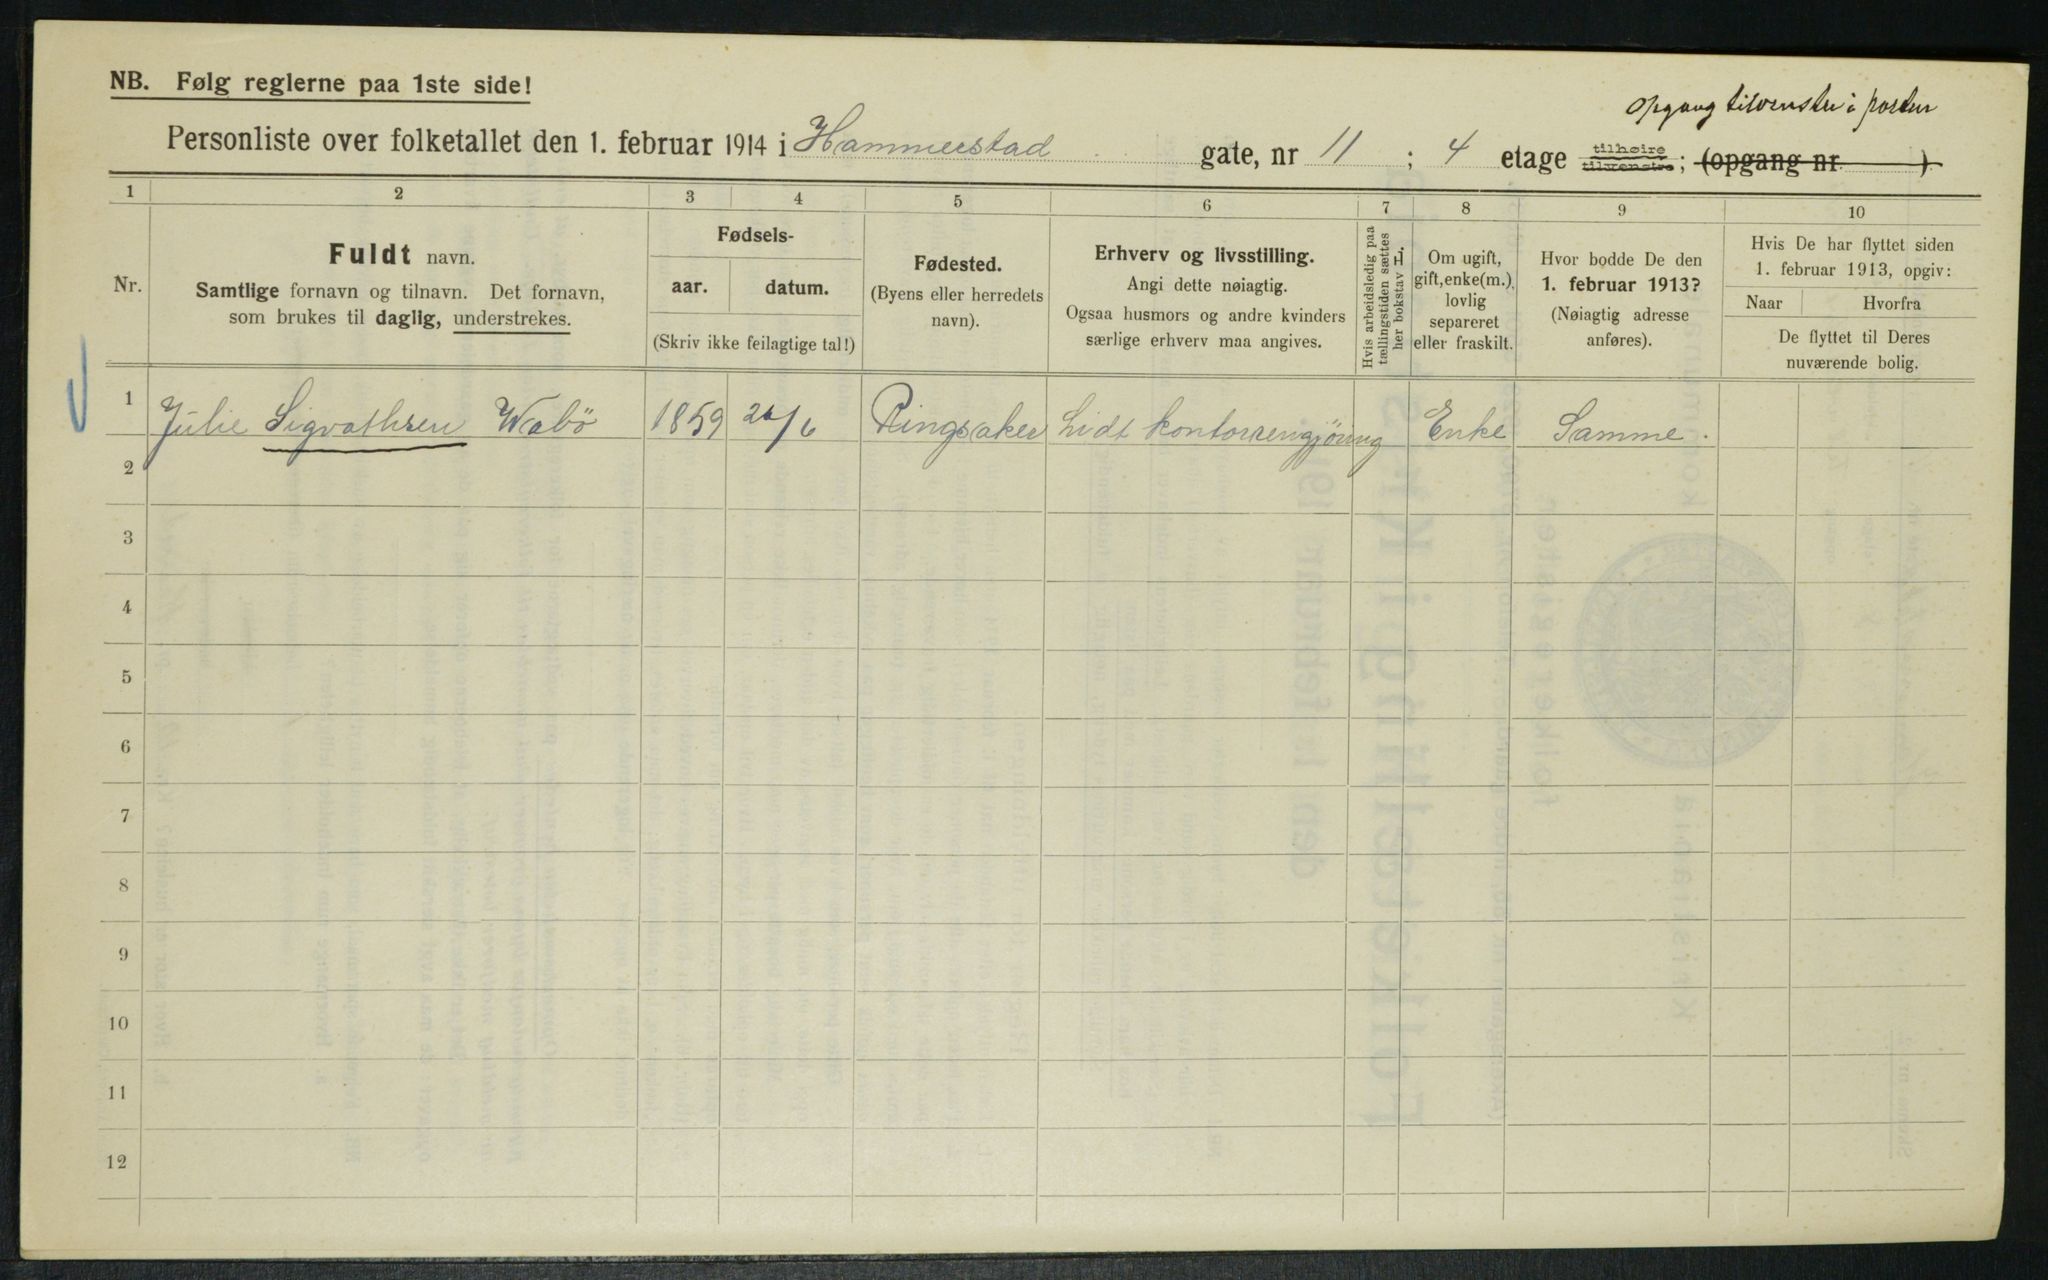 NB. Følg reglerne paa 1ste side!
opgang tilvenstre i porten
Personliste over folketallet den 1. februar 1914 i Hammerstad gate, nr 11 ; 4 etage tilhøire tilvenstre; (opgang nr. )
1 2 3 4 5 6 7 8 9 10
Nr.
Fuldt navn.
Samtlige fornavn og tilnavn. Det fornavn,
som brukes til daglig, understrekes.
Fødsels-
aar. datum.
(Skriv ikke feilagtige tal!)
Fødested.
(Byens eller herredets
navn).
Erhverv og livsstilling.
Angi dette nøiagtig.
Ogsaa husmors og andre kvinders
særlige erhverv maa angives.
Hvis arbeidsledig paa
tællingstiden sættes
her bokstav L.
Om ugift,
gift, enke(m.),
lovlig
separeret
eller fraskilt.
Hvor bodde De den
1. februar 1913?
(Nøiagtig adresse
anføres).
Hvis De har flyttet siden
1. februar 1913, opgiv:
Naar Hvorfra
De flyttet til Deres
nuværende bolig.
1 Julie Sigvathsen Wabö 1859 26/6 Ringsaker Lidt kontorrengjöring Enke Samme.
2
3
4
5
6
7
8
9
10
11
12